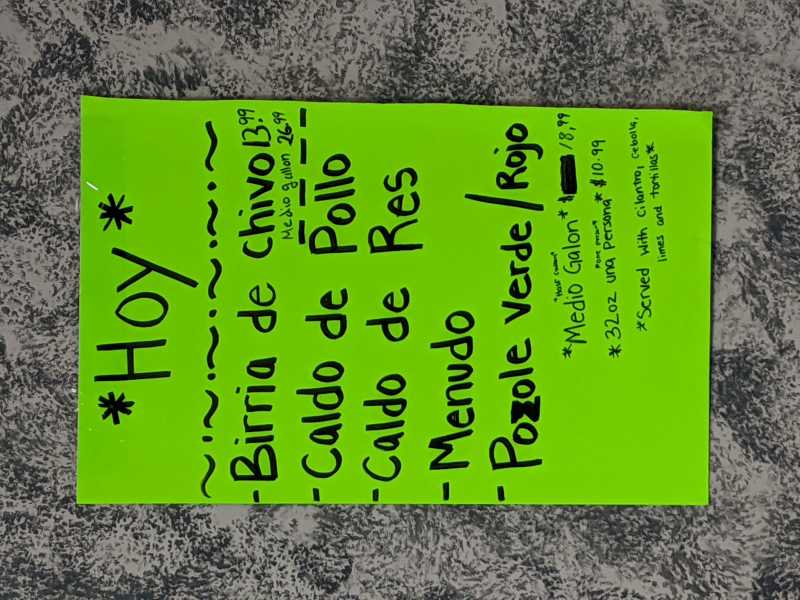 *Hoy*
~·~·~·~·~·~·~
- Birria de chivo 13.99
Medio gallon 26.99
- Caldo de Pollo
- Caldo de Res
- Menudo
- Pozole verde/Rojo
"Half Gallon"
*Medio Galon* $ 18,99
"one person"
*32oz una persona* $10.99
*Served with cilantro, cebolla,
limes and tortillas*